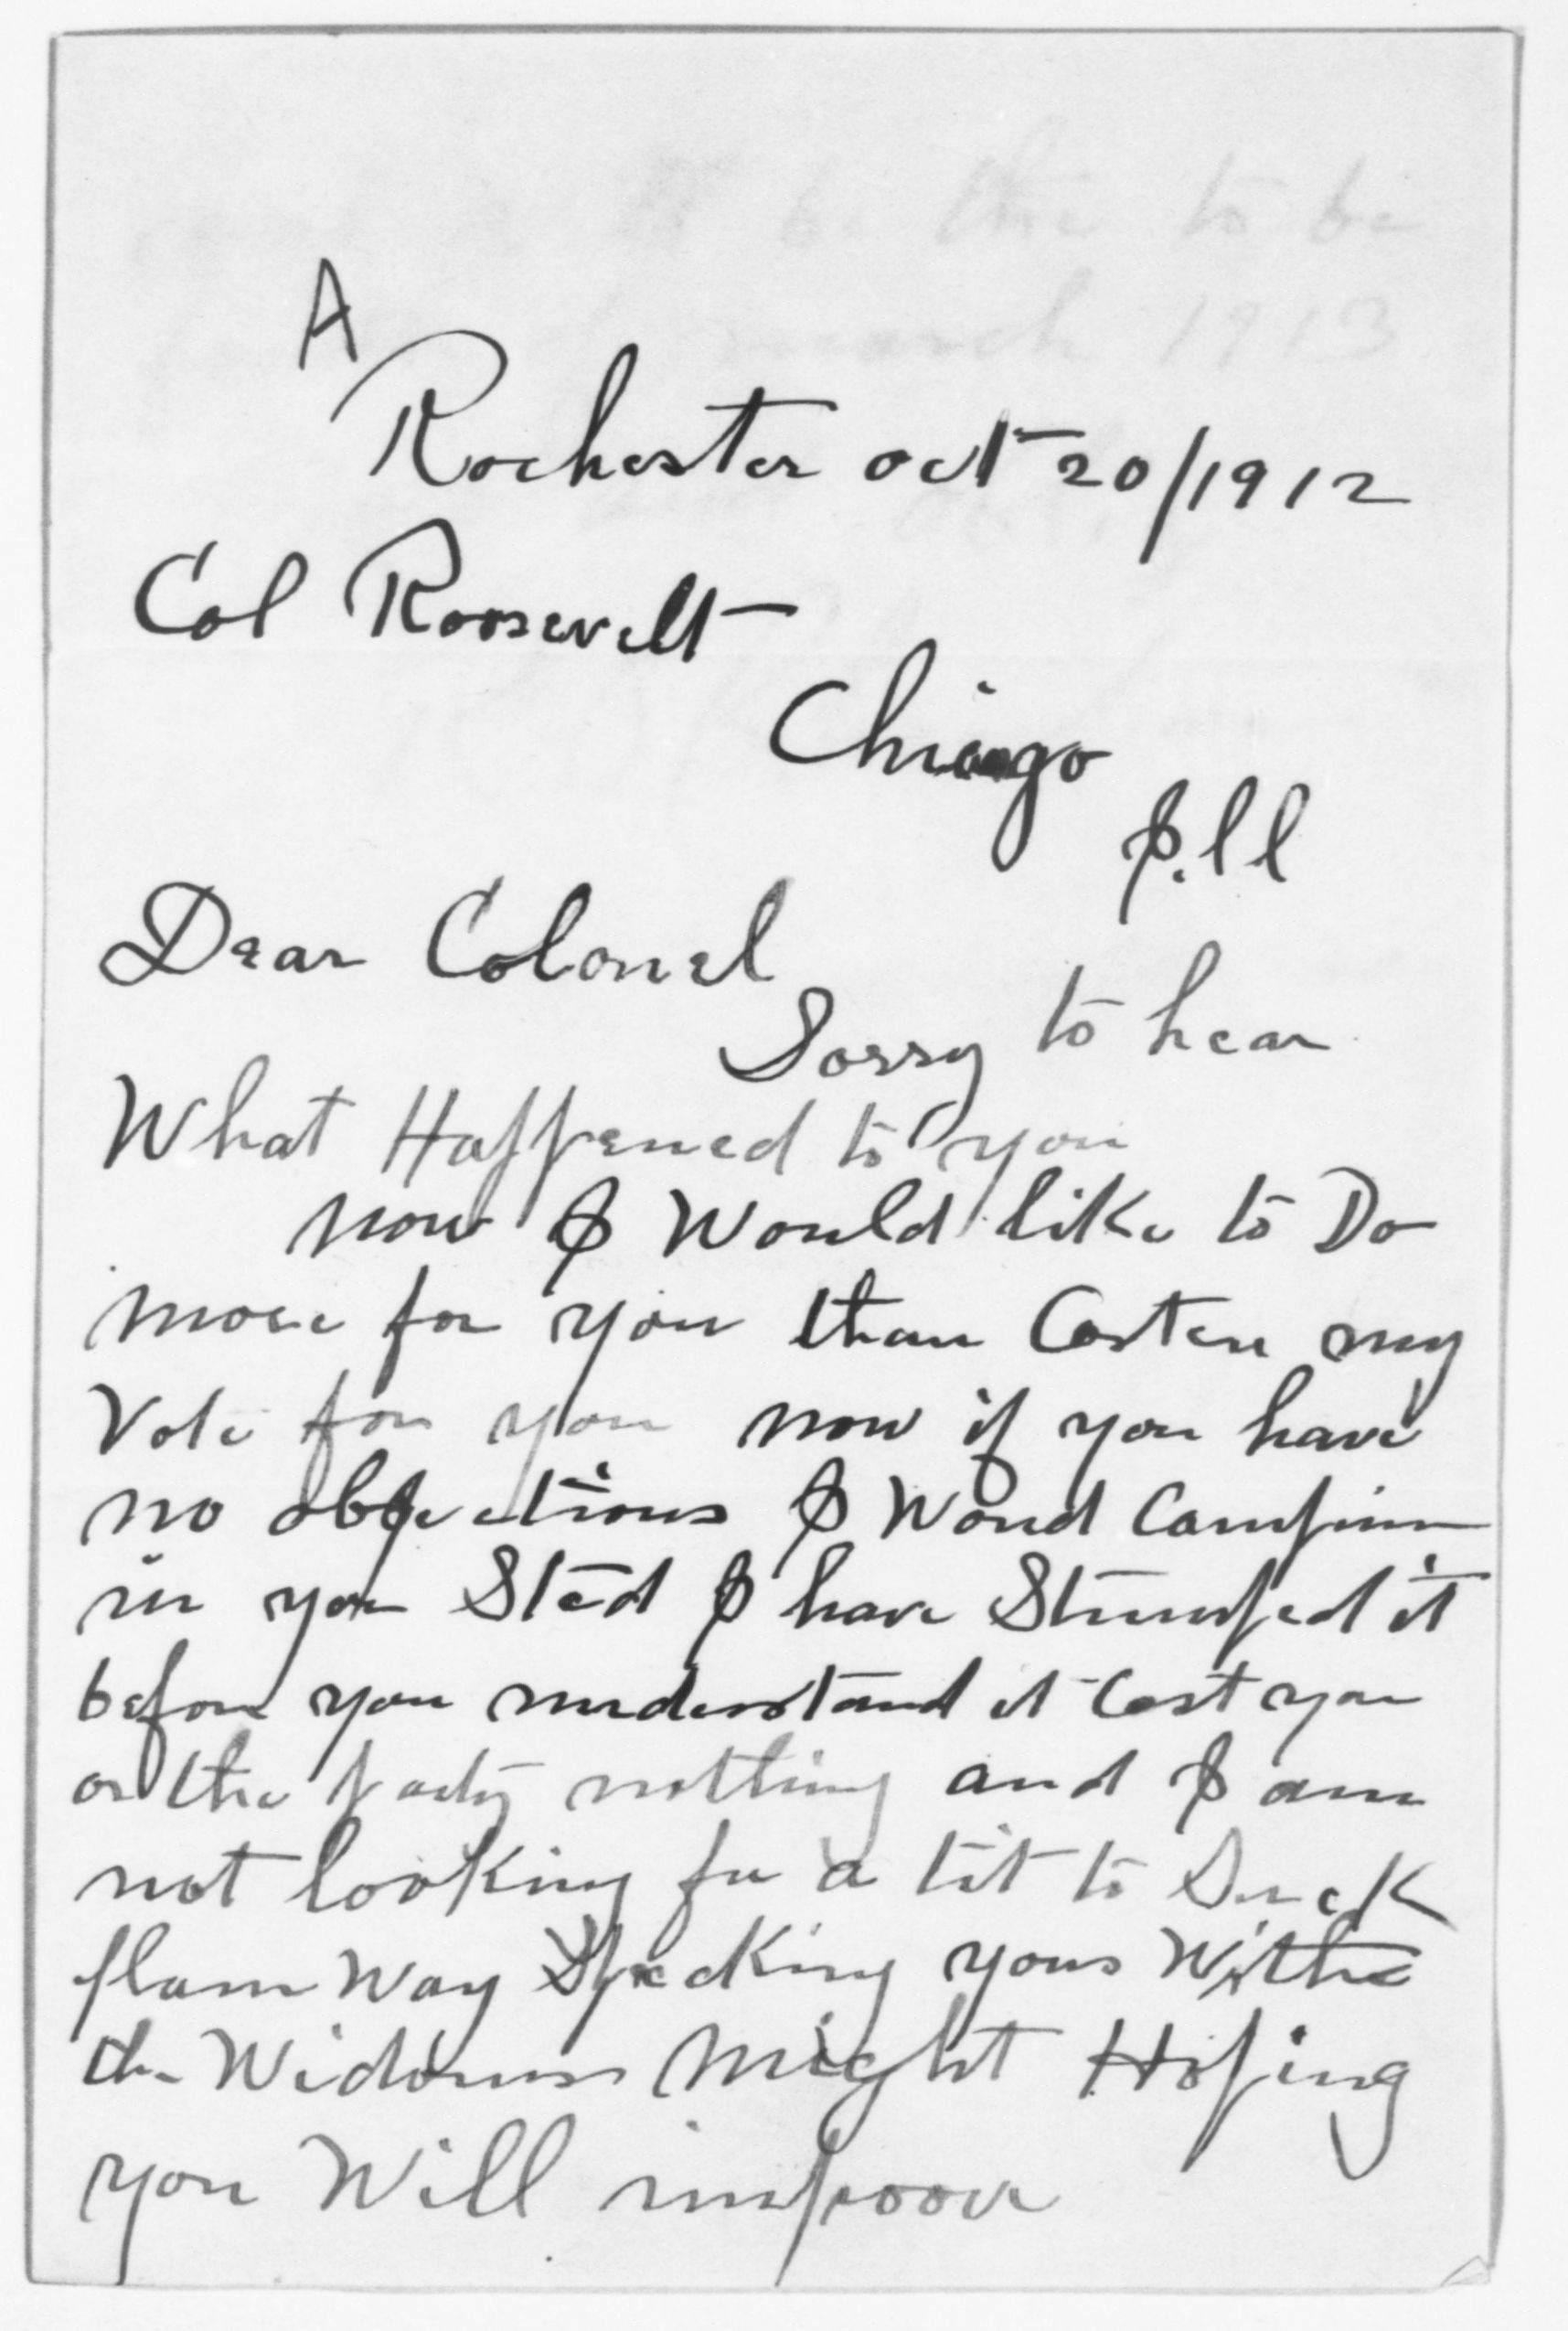 A
Rochester oct 20/1912
Col Roosevelt
Chicago
Ill
Dear Colonel
Sorry to hear
What Happened to you
now I Would like to Do
more for you than Casten my
Vote for you now if you have
no objections I Woud Campain
in you Sted I have Stumped it
before you understand it Cost you
or the party nothing and I am
not looking for a tit to Suck
plain Way Specking yours With
the Widdows Might Hoping
you Will improove